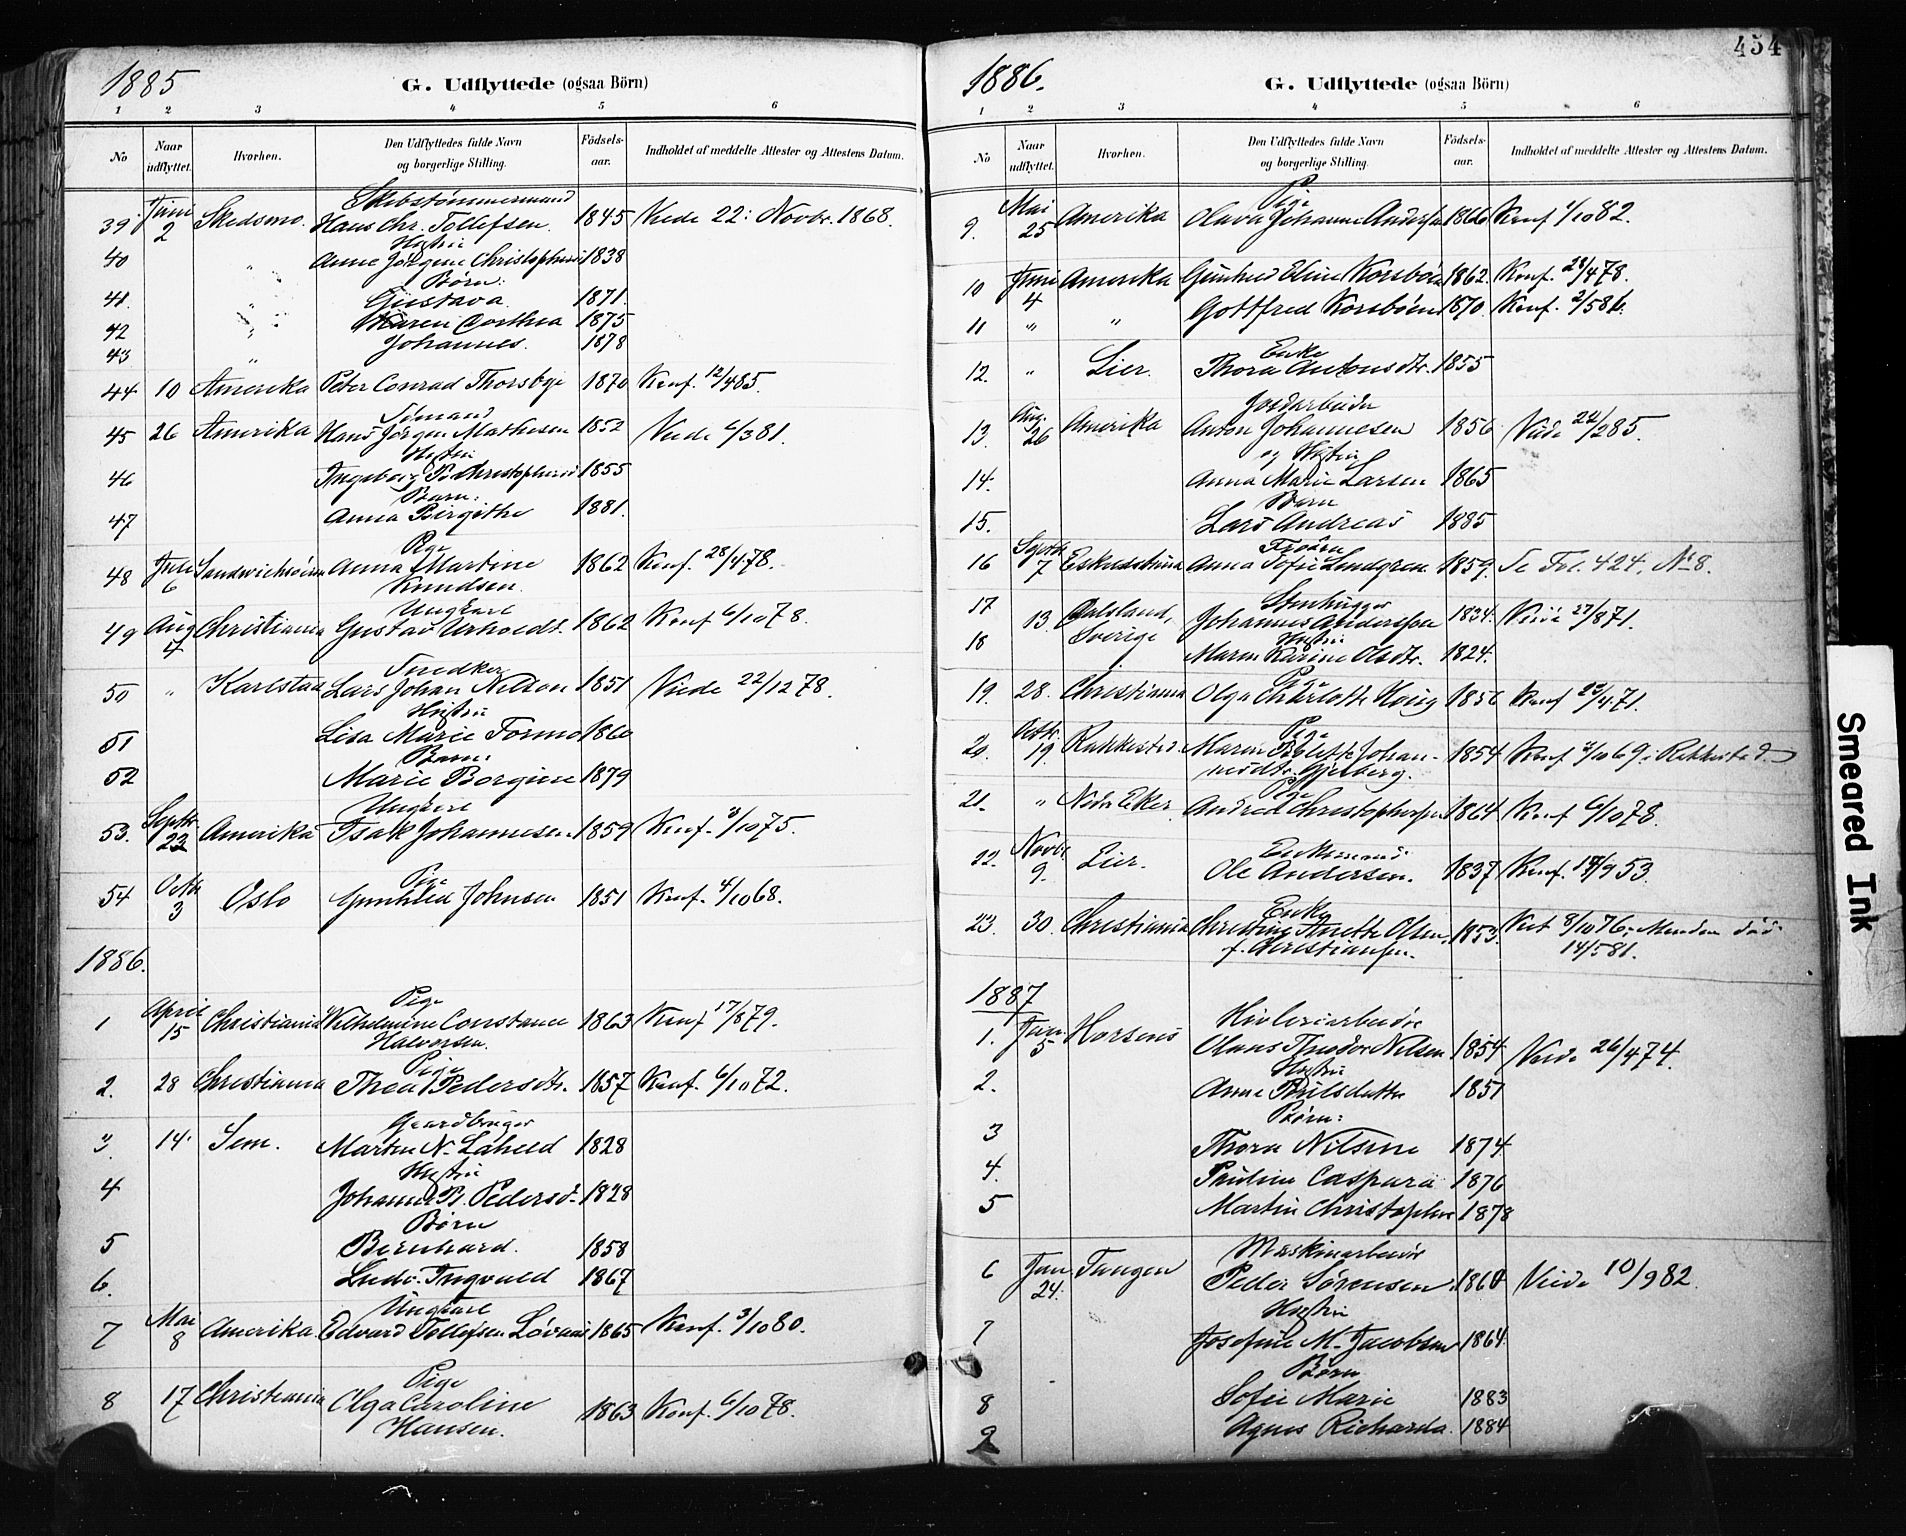 1885
G. Udflyttede (ogsaa Börn)
1 2 3 4 5 6
No Naar udflyttet. Hvorhen. Den Udflyttedes fulde Navn og borgerlige Stilling. Födsels-aar. Indholdet af meddelte Attester og Attestens Datum.
Skibstømmermand
39 Juni 2 Skedsmo. Hans Chr. Tollefsen. 1845 Viede 22: Novbr. 1868.
Hustru
40 " Anne Jørgine 1838
Børn:
41. " Gustava 1871.
42 " Karen Dorthea 1875
43 " Johannes. 1878
44 10 Amerika Peter Conrad Thorsbye 1870 Konf. 12/4 85.
Sömand
45 26 Amerika Hans Jörgen Mathesen 1852 Viede 6/3 81.
Hustru
46 Ingeborg 1855
Barn:
47 Anna Birgithe 1881.
Pige
48 6 Anna Martine 1862 Konf. 28/4 78.
Knudsen.
Ungkarl
49 Aug 7 Christiania Gustav 1862 Konf 6/10 78.
Snedker
50 " Karlstad Lars Johan Nilson 1851 Viede 22/12 78.
Hustru
51 Lisa Marie Formo 1860
Barn:
52 Marie Borgine 1879
Ungkarl
53. Septbr. 23 Amerika Isak Johannesen. 1859 Konf. 3/10 75.
Pige
54 Octb 3 Oslo Gunhild Johnsen 1851 Konf. 4/10 68.
1886.
Pige
1 April 15 Christiania Wilhelmine Constance 1863 Konf 17/8 79.
Halvorsen.
Pige
2. 28 Christiania Thea Pedersdtr. 1857 Konf. 6/10 72.
Gaardbruger
3. 14. Sem. Marten N. 1828
Hustru
4 Johanne P. Pedersdt. 1828
Børn
5 Bernhard. 1858
6. Ludv. Ingvald 1867
Ungkarl
7 Mai 8 Amerika Edvard Tollefsen 1865 Konf. 3/10 80.
Pige
8 17 Christiania Olga Caroline 1863 Konf. 6/10 78.
Hansen.
454
1886.
G. Udflyttede (ogsaa Börn)
1 2 3 4 5 6
No Naar udflyttet. Hvorhen. Den Udflyttedes fulde Navn og borgerlige Stilling. Födsels-aar. Indholdet af meddelte Attester og Attestens Datum.
Pige
9. Mai 25 Amerika Olava Johanne 1866 Konf 1/10 82.
10 Juni 4 Amerika Gunhild Elise 1862. Konf. 28/4 78.
11 " " Gottfred 1870. Konf. 2/5 86.
Enke
12. " Lier. Thora Antonsdtr. 1855
Jordarbeider
13. Aug. 26 Amerika Anton Johannesen 1856 Viede 22/2 85.
og Hustru
14. Anna Marie Larsen 1865
Barn
15. Lars Andreas 1885
Frøken
16 Septb 7 Anna Sofie Lindgren 1859. Se Fol. 424, No 8.
Stenhugger
17 13. Dalsland, Johannes Anderssen 1834. Viede 27/8 71.
Sverige
Hustru
18 Maren Karine Olsdtr. 1824.
Pige
19. 28. Christiania Olga Charlotte Haug 1856 Konf 23/4 71.
Pige
20. Octbr. 19. Rakkestad Maren Johan- 1854 Konf 3/10 69 i Rakkestad
nesdtr. Gjelberg.
Pige
21. " Nedr. Eker. Andrea 1864 Konf 6/10 78.
Enkemand
22. Novbr. 9. Lier. Ole Andersen. 1837 Konf. 18/9 53.
Enke
23. 30. Christiania Christine Anette Olsen, 1853. Viet 8/10 76, Manden död
f. Christiansen. 14/5 81.
1887
Høvleriarbeider
1. Jan. 5 Horsens Olaus Theodor Nilsen 1854 Viede 26/4 74.
Hustru
2. Anne Poulsdatter 1851
Børn:
3 Thora Nilsine 1874
4. Pauline Caspara 1876
5 Martin Christopher 1878
Maskinarbeider
6 Jan 24. Tangen Peder Sørensen. 1860 Viede 10/9 82.
Hustru
7 Josefine M. Jacobsen 1864.
Børn
8 Sofie Marie 1883
9 Agnes Richarda. 1884
Smeared Ink